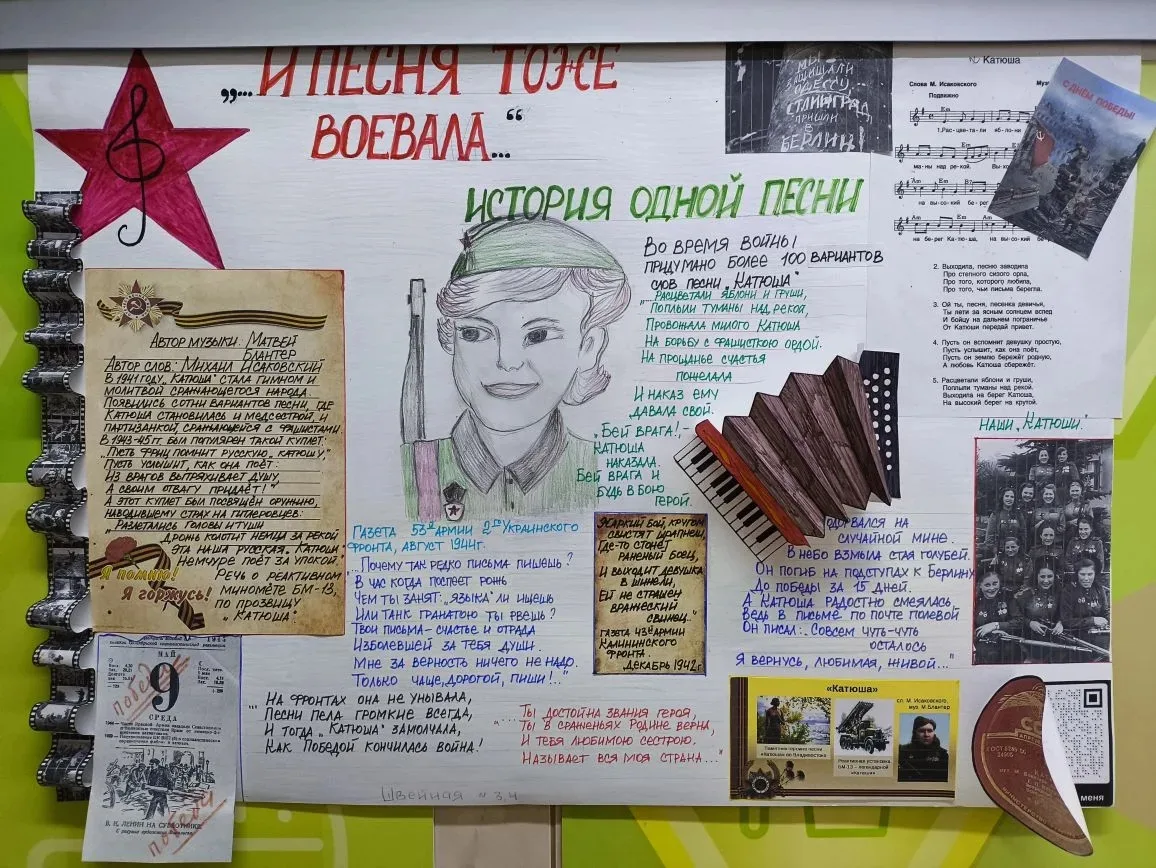 „...И ПЕСНЯ ТОЖЕ
ВОЕВАЛА..."
МЫ
ЗАЩИЩАЛИ
ОДЕССУ,
СТАЛИНГРАД,
ПРИШЛИ
В
БЕРЛИН!
Катюша
Слова М. Исаковского
Подвижно
1.Рас-цве-та-ли яб-ло-ни
ма-ны над ре-кой.
на вы-со-кий бе-рег
на бе-рег Ка-тю-ша, на вы-со-кий
2. Выходила, песню заводила
Про степного сизого орла,
Про того, которого любила,
Про того, чьи письма берегла.
3. Ой ты, песня, песенка девичья,
Ты лети за ясным солнцем вслед
И бойцу на дальнем пограничье
От Катюши передай привет.
4. Пусть он вспомнит девушку простую,
Пусть услышит, как она поёт,
Пусть он землю бережёт родную,
А любовь Катюша сбережёт.
5. Расцветали яблони и груши,
Поплыли туманы над рекой.
Выходила на берег Катюша,
На высокий берег на крутой.
С ДНЁМ ПОБЕДЫ!
ИСТОРИЯ ОДНОЙ ПЕСНИ
ВО ВРЕМЯ ВОЙНЫ
ПРИДУМАНО БОЛЕЕ 100 ВАРИАНТОВ
СЛОВ ПЕСНИ „КАТЮША"
„РАСЦВЕТАЛИ ЯБЛОНИ И ГРУШИ,
ПОПЛЫЛИ ТУМАНЫ НАД РЕКОЙ,
ПРОВОЖАЛА МИЛОГО КАТЮША
НА БОРЬБУ С ФАШИСТКОЮ ОРДОЙ.
НА ПРОЩАНЬЕ СЧАСТЬЯ
ПОЖЕЛАЛА
И НАКАЗ ЕМУ
ДАВАЛА СВОЙ.
„БЕЙ ВРАГА!-
КАТЮША
НАКАЗАЛА.
БЕЙ ВРАГА И
БУДЬ В БОЮ
ГЕРОЙ.
АВТОР МУЗЫКИ: МАТВЕЙ
БЛАНТЕР
АВТОР СЛОВ: МИХАИЛ ИСАКОВСКИЙ
В 1941 ГОДУ „КАТЮША" СТАЛА ГИМНОМ И
МОЛИТВОЙ СРАЖАЮЩЕГОСЯ НАРОДА.
ПОЯВИЛИСЬ СОТНИ ВАРИАНТОВ ПЕСНИ, ГДЕ
КАТЮША СТАНОВИЛАСЬ И МЕДСЕСТРОЙ, И
ПАРТИЗАНКОЙ, СРАЖАЮЩЕЙСЯ С ФАШИСТАМИ.
В 1943-45 ГГ. БЫЛ ПОПУЛЯРЕН ТАКОЙ КУПЛЕТ:
„ПУСТЬ ФРИЦ ПОМНИТ РУССКУЮ „КАТЮШУ",
ПУСТЬ УСЛЫШИТ, КАК ОНА ПОЁТ:
ИЗ ВРАГОВ ВЫТРЯХИВАЕТ ДУШУ,
А СВОИМ ОТВАГУ ПРИДАЁТ!"
А ЭТОТ КУПЛЕТ БЫЛ ПОСВЯЩЁН ОРУЖИЮ,
НАВОДИВШЕМУ СТРАХ НА ГИТЛЕРОВЦЕВ:
„РАЗЛЕТАЛИСЬ ГОЛОВЫ И ТУШИ
ДРОЖЬ КОЛОТИТ НЕМЦА ЗА РЕКОЙ
ЭТА НАША РУССКАЯ „КАТЮША"
НЕМЧУРЕ ПОЁТ ЗА УПОКОЙ.
РЕЧЬ О РЕАКТИВНОМ
МИНОМЁТЕ БМ-13,
ПО ПРОЗВИЩУ
„КАТЮША"
Я помню!
Я горжусь!
ГАЗЕТА 53й АРМИИ 2го УКРАИНСКОГО
ФРОНТА, АВГУСТ 1944г.
„ПОЧЕМУ ТАК РЕДКО ПИСЬМА ПИШЕШЬ?
В ЧАС КОГДА ПОСПЕЕТ РОЖЬ
ЧЕМ ТЫ ЗАНЯТ: „ЯЗЫКА" ЛИ ИЩЕШЬ
ИЛИ ТАНК ГРАНАТОЮ ТЫ РВЁШЬ?
ТВОИ ПИСЬМА – СЧАСТЬЕ И ОТРАДА
ИЗБОЛЕВШЕЙ ЗА ТЕБЯ ДУШИ.
МНЕ ЗА ВЕРНОСТЬ НИЧЕГО НЕ НАДО.
ТОЛЬКО ЧАЩЕ, ДОРОГОЙ, ПИШИ!.."
„ЖАРКИЙ БОЙ, КРУГОМ
СВИСТЯТ ШРАПНЕЛИ,
ГДЕ-ТО СТОНЕТ
РАНЕНЫЙ БОЕЦ,
И ВЫХОДИТ ДЕВУШКА
В ШИНЕЛИ,
ЕЙ НЕ СТРАШЕН
ВРАЖЕСКИЙ
СВИНЕЦ."
ГАЗЕТА 43й АРМИИ
КАЛИНИНСКОГО
ФРОНТА.
ДЕКАБРЬ 1942г.
ПОДОРВАЛСЯ НА
СЛУЧАЙНОЙ МИНЕ.
В НЕБО ВЗМЫЛА СТАЯ ГОЛУБЕЙ.
ОН ПОГИБ НА ПОДСТУПАХ К БЕРЛИНУ
ДО ПОБЕДЫ ЗА 15 ДНЕЙ.
А КАТЮША РАДОСТНО СМЕЯЛАСЬ
ВЕДЬ В ПИСЬМЕ ПО ПОЧТЕ ПОЛЕВОЙ
ОН ПИСАЛ: „СОВСЕМ ЧУТЬ-ЧУТЬ
ОСТАЛОСЬ
Я ВЕРНУСЬ, ЛЮБИМАЯ, ЖИВОЙ..."
НАШИ „КАТЮШИ"
МАЙ
9
СРЕДА
победы
В. И. ЛЕНИН НА СУББОТНИКЕ
победы
„НА ФРОНТАХ ОНА НЕ УНЫВАЛА,
ПЕСНИ ПЕЛА ГРОМКИЕ ВСЕГДА,
И ТОГДА „КАТЮША" ЗАМОЛЧАЛА,
КАК ПОБЕДОЙ КОНЧИЛАСЬ ВОЙНА!
„...ТЫ ДОСТОЙНА ЗВАНИЯ ГЕРОЯ,
ТЫ В СРАЖЕНЬЯХ РОДИНЕ ВЕРНА,
И ТЕБЯ ЛЮБИМОЮ СЕСТРОЮ.
НАЗЫВАЕТ ВСЯ МОЯ СТРАНА..."
Швейная №3,4
«Катюша»
сл. М. Исаковского,
муз. М.Блантер
Памятник героине песни
«Катюша» во Владивостоке
Реактивная установка
БМ-13 – легендарной
«Катюши»
ГОСТ 5289-
меня